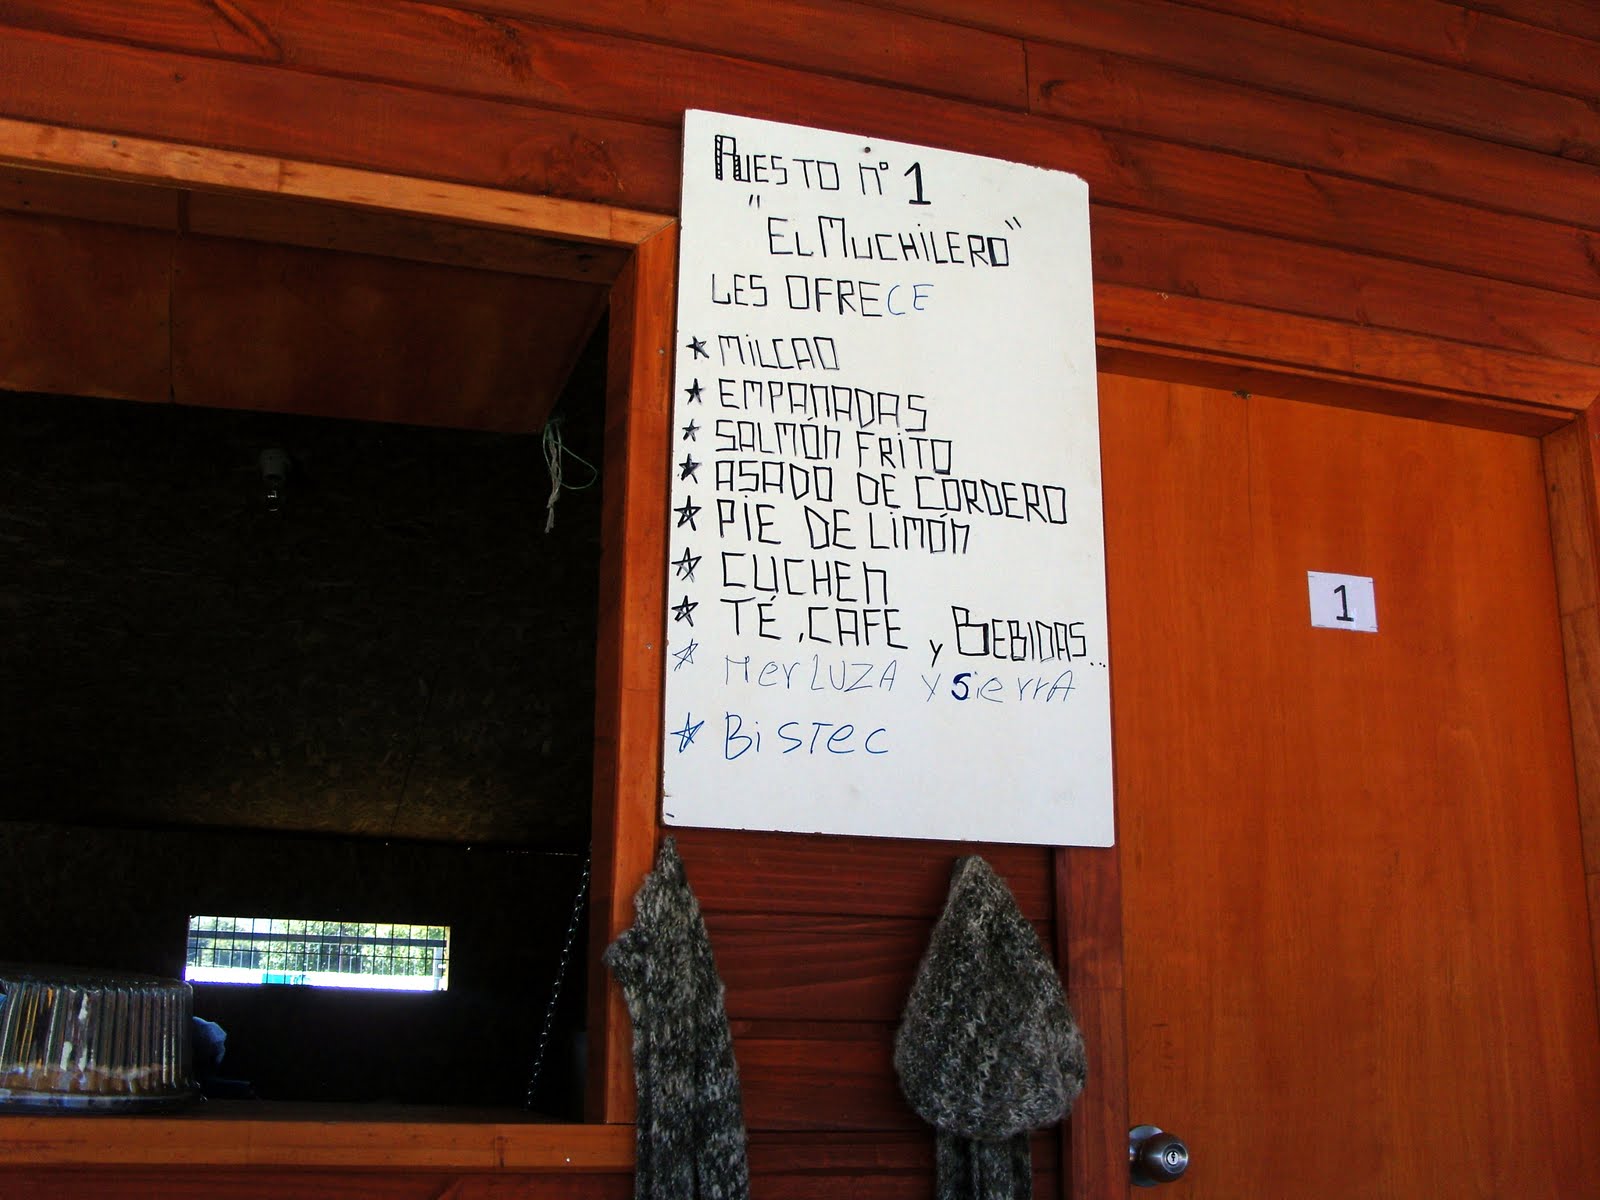 PUESTO nº 1
"EL MUCHILERO"
LES OFRECE
★ MILCAO
★ EMPANADAS
★ SALMÓN FRITO
★ ASADO DE CORDERO
★ PIE DE LIMÓN
★ CUCHEN
★ TÉ, CAFE y BEBIDAS...
★ MerLUZA y SierrA
★ BiSTec
1